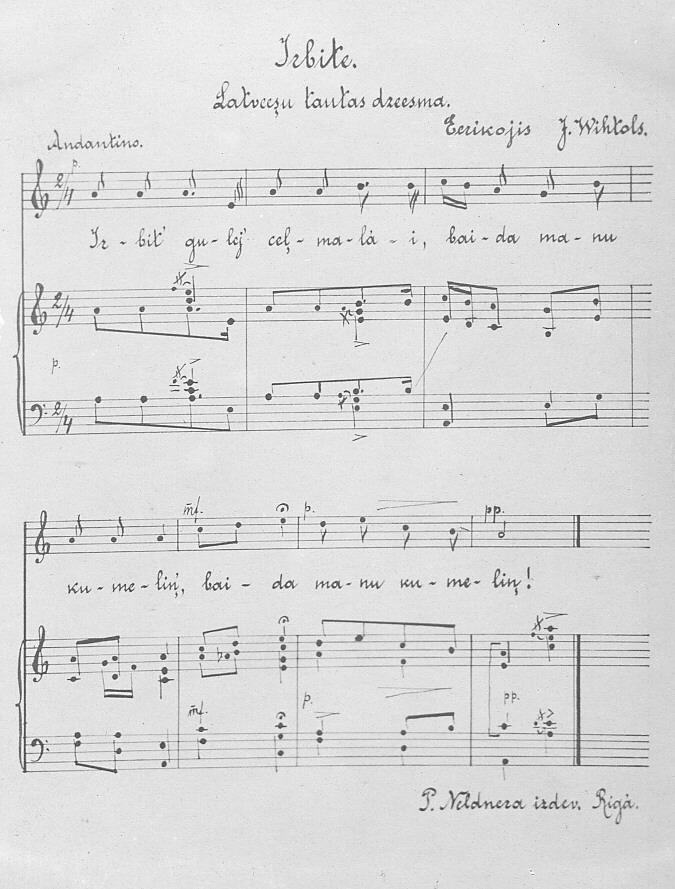 Irbite.
Latveeşu tautas dzeesma.
Eerikojis J. Wihtols.
Andantino.
p.
2/4
Ir-bit' gu-lej' ceļ-ma-lá-i, bai-da ma-nu
2/4
p.
2/4
mf. p. pp.
ku-me-liņ', bai-da ma-nu ku-me-liņ!
mf. p. pp.
P. Neldnera izdev. Rigá.